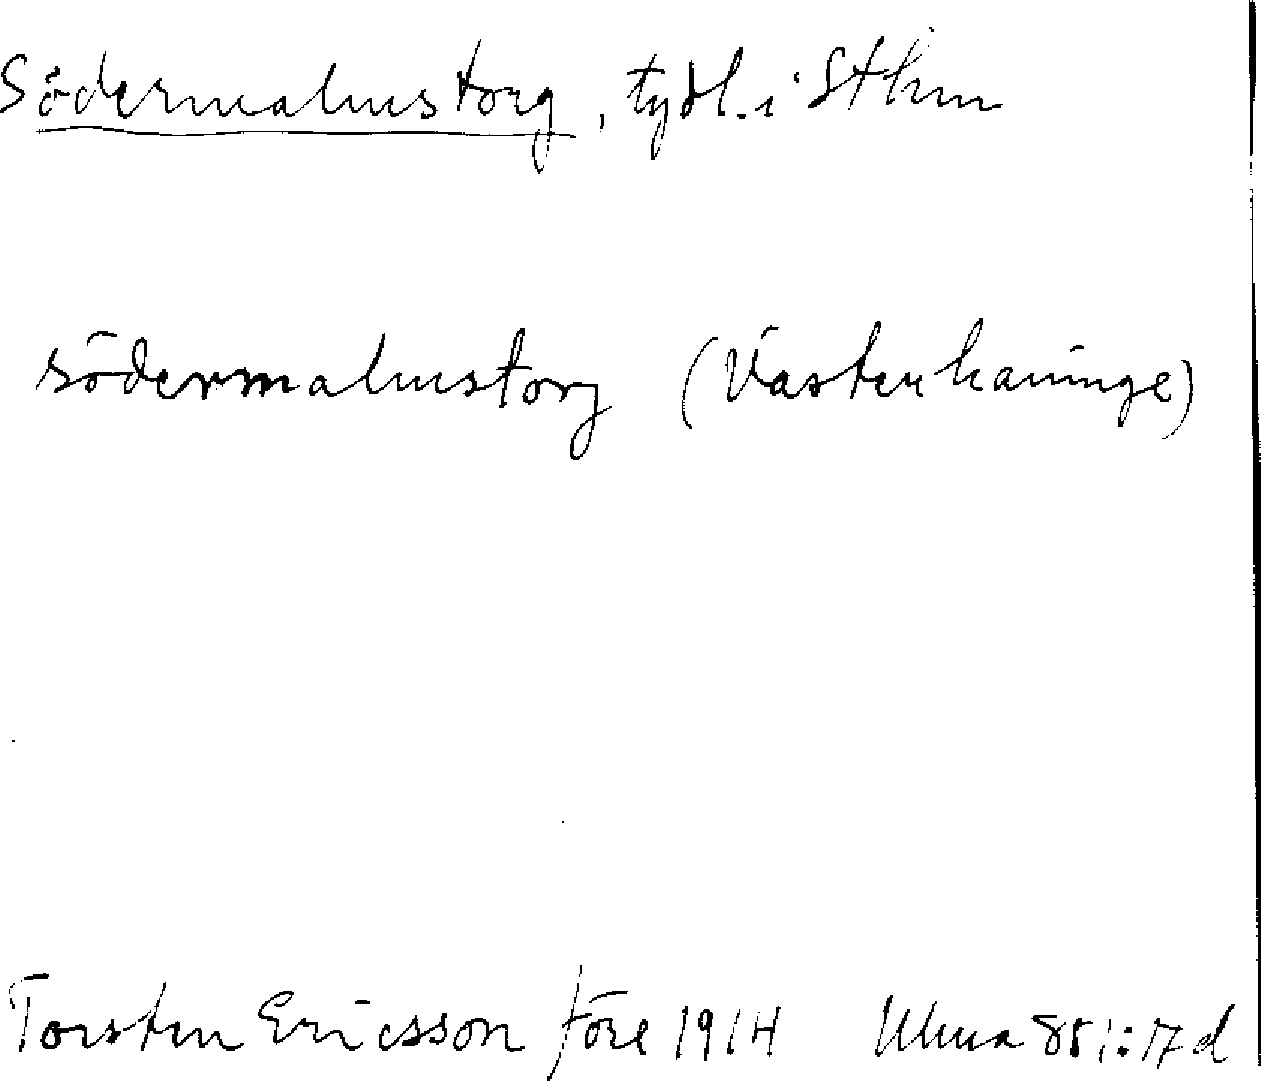 Södermalmstorg, tydl. i Sthm
södermalmstorg (Västerhaninge)
Torsten Ericsson före 1914 Ulma 85:: 17 d